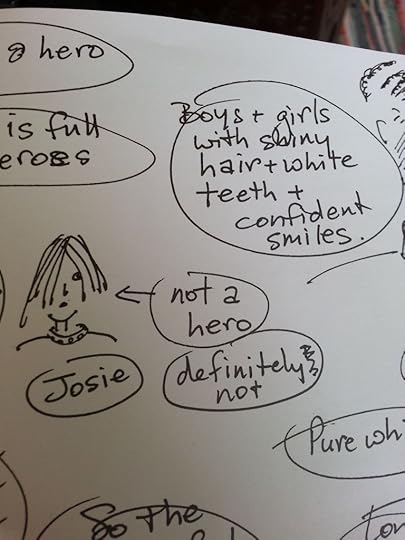 a hero
is full
eroes
Boys + girls
with shiny
hair + white
teeth +
confident
smiles.
not a
hero
Josie
definitely
not
Pure whi
So the